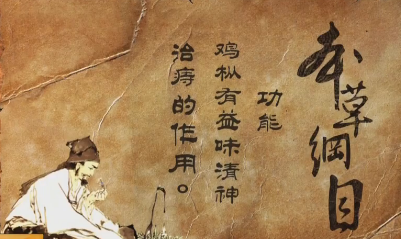 本草綱目
功能
鸡枞有益味清神
治痔的作用。